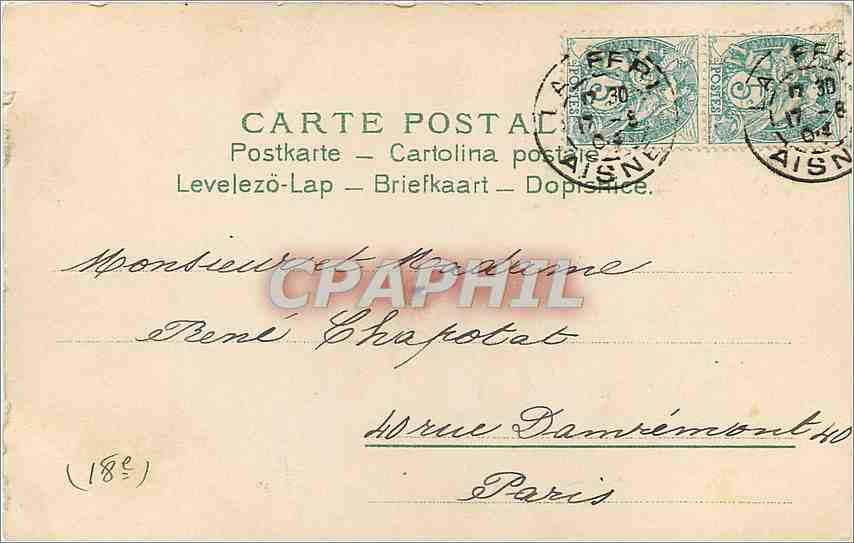 CARTE POSTALE
Postkarte – Cartolina postale
Levelezö-Lap – Briefkaart – Dopisnice.
5
POSTES
5
POSTES
LA FFR
17 30
17 - 8
04
AISNE
LA FFR
17 30
17 - 8
04
AISNE
CPAPHIL
Monsieur et Madame
René Chapotat
40 rue Damrémont 40
(18e)
Paris